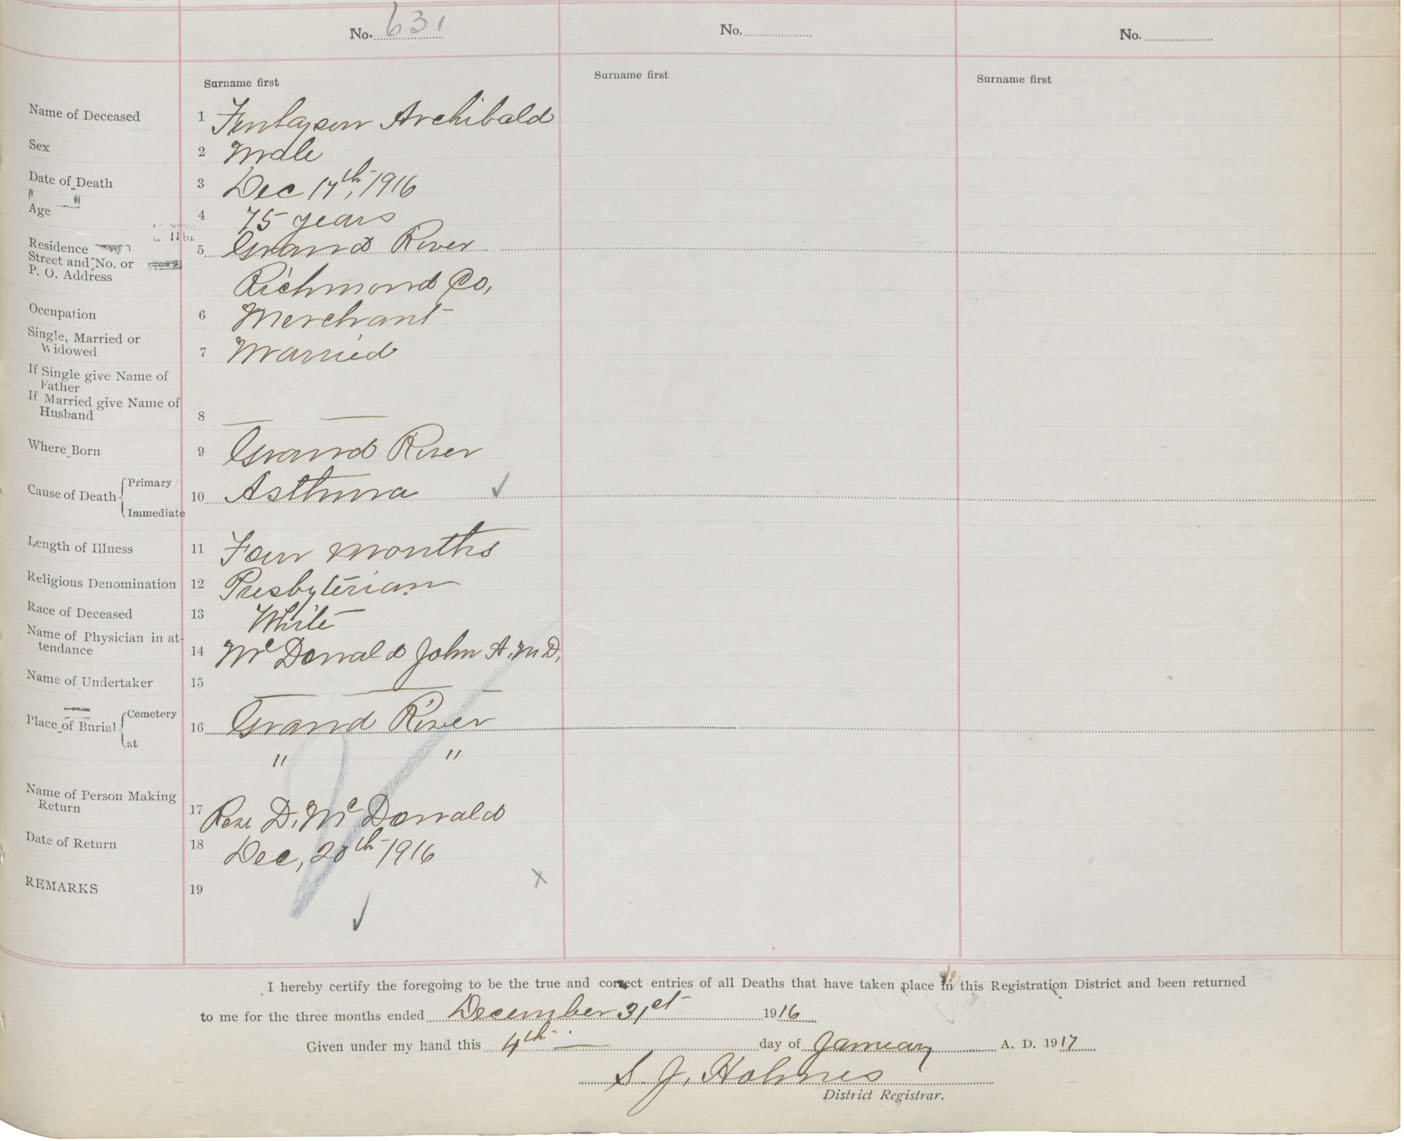 No. 631 No. No.
Surname first Surname first Surname first
Name of Deceased 1 Finlayson Archibald
Sex 2 Male
Date of Death 3 Dec 17th, 1916
Age 4 75 years
Residence 5 Grand River
Street and No. or
P. O. Address Richmond Co,
Occupation 6 Merchant
Single, Married or
Widowed 7 Married
If Single give Name of
Father
If Married give Name of
Husband 8 — —
Where Born 9 Grand River
Primary
Cause of Death 10 Asthma ✓
Immediate
Length of Illness 11 Four months
Religious Denomination 12 Presbyterian
Race of Deceased 13 White
Name of Physician in at-
tendance 14 McDonald John A. M.D.
Name of Undertaker 15 — —
Cemetery
Place of Burial 16 Grand River
at " "
Name of Person Making
Return 17 Rev D. McDonald
Date of Return 18 Dec, 20th 1916
REMARKS 19
I hereby certify the foregoing to be the true and correct entries of all Deaths that have taken place in this Registration District and been returned
to me for the three months ended December 31st 1916
Given under my hand this 4th day of January A. D. 1917
S. J. Holmes
District Registrar.